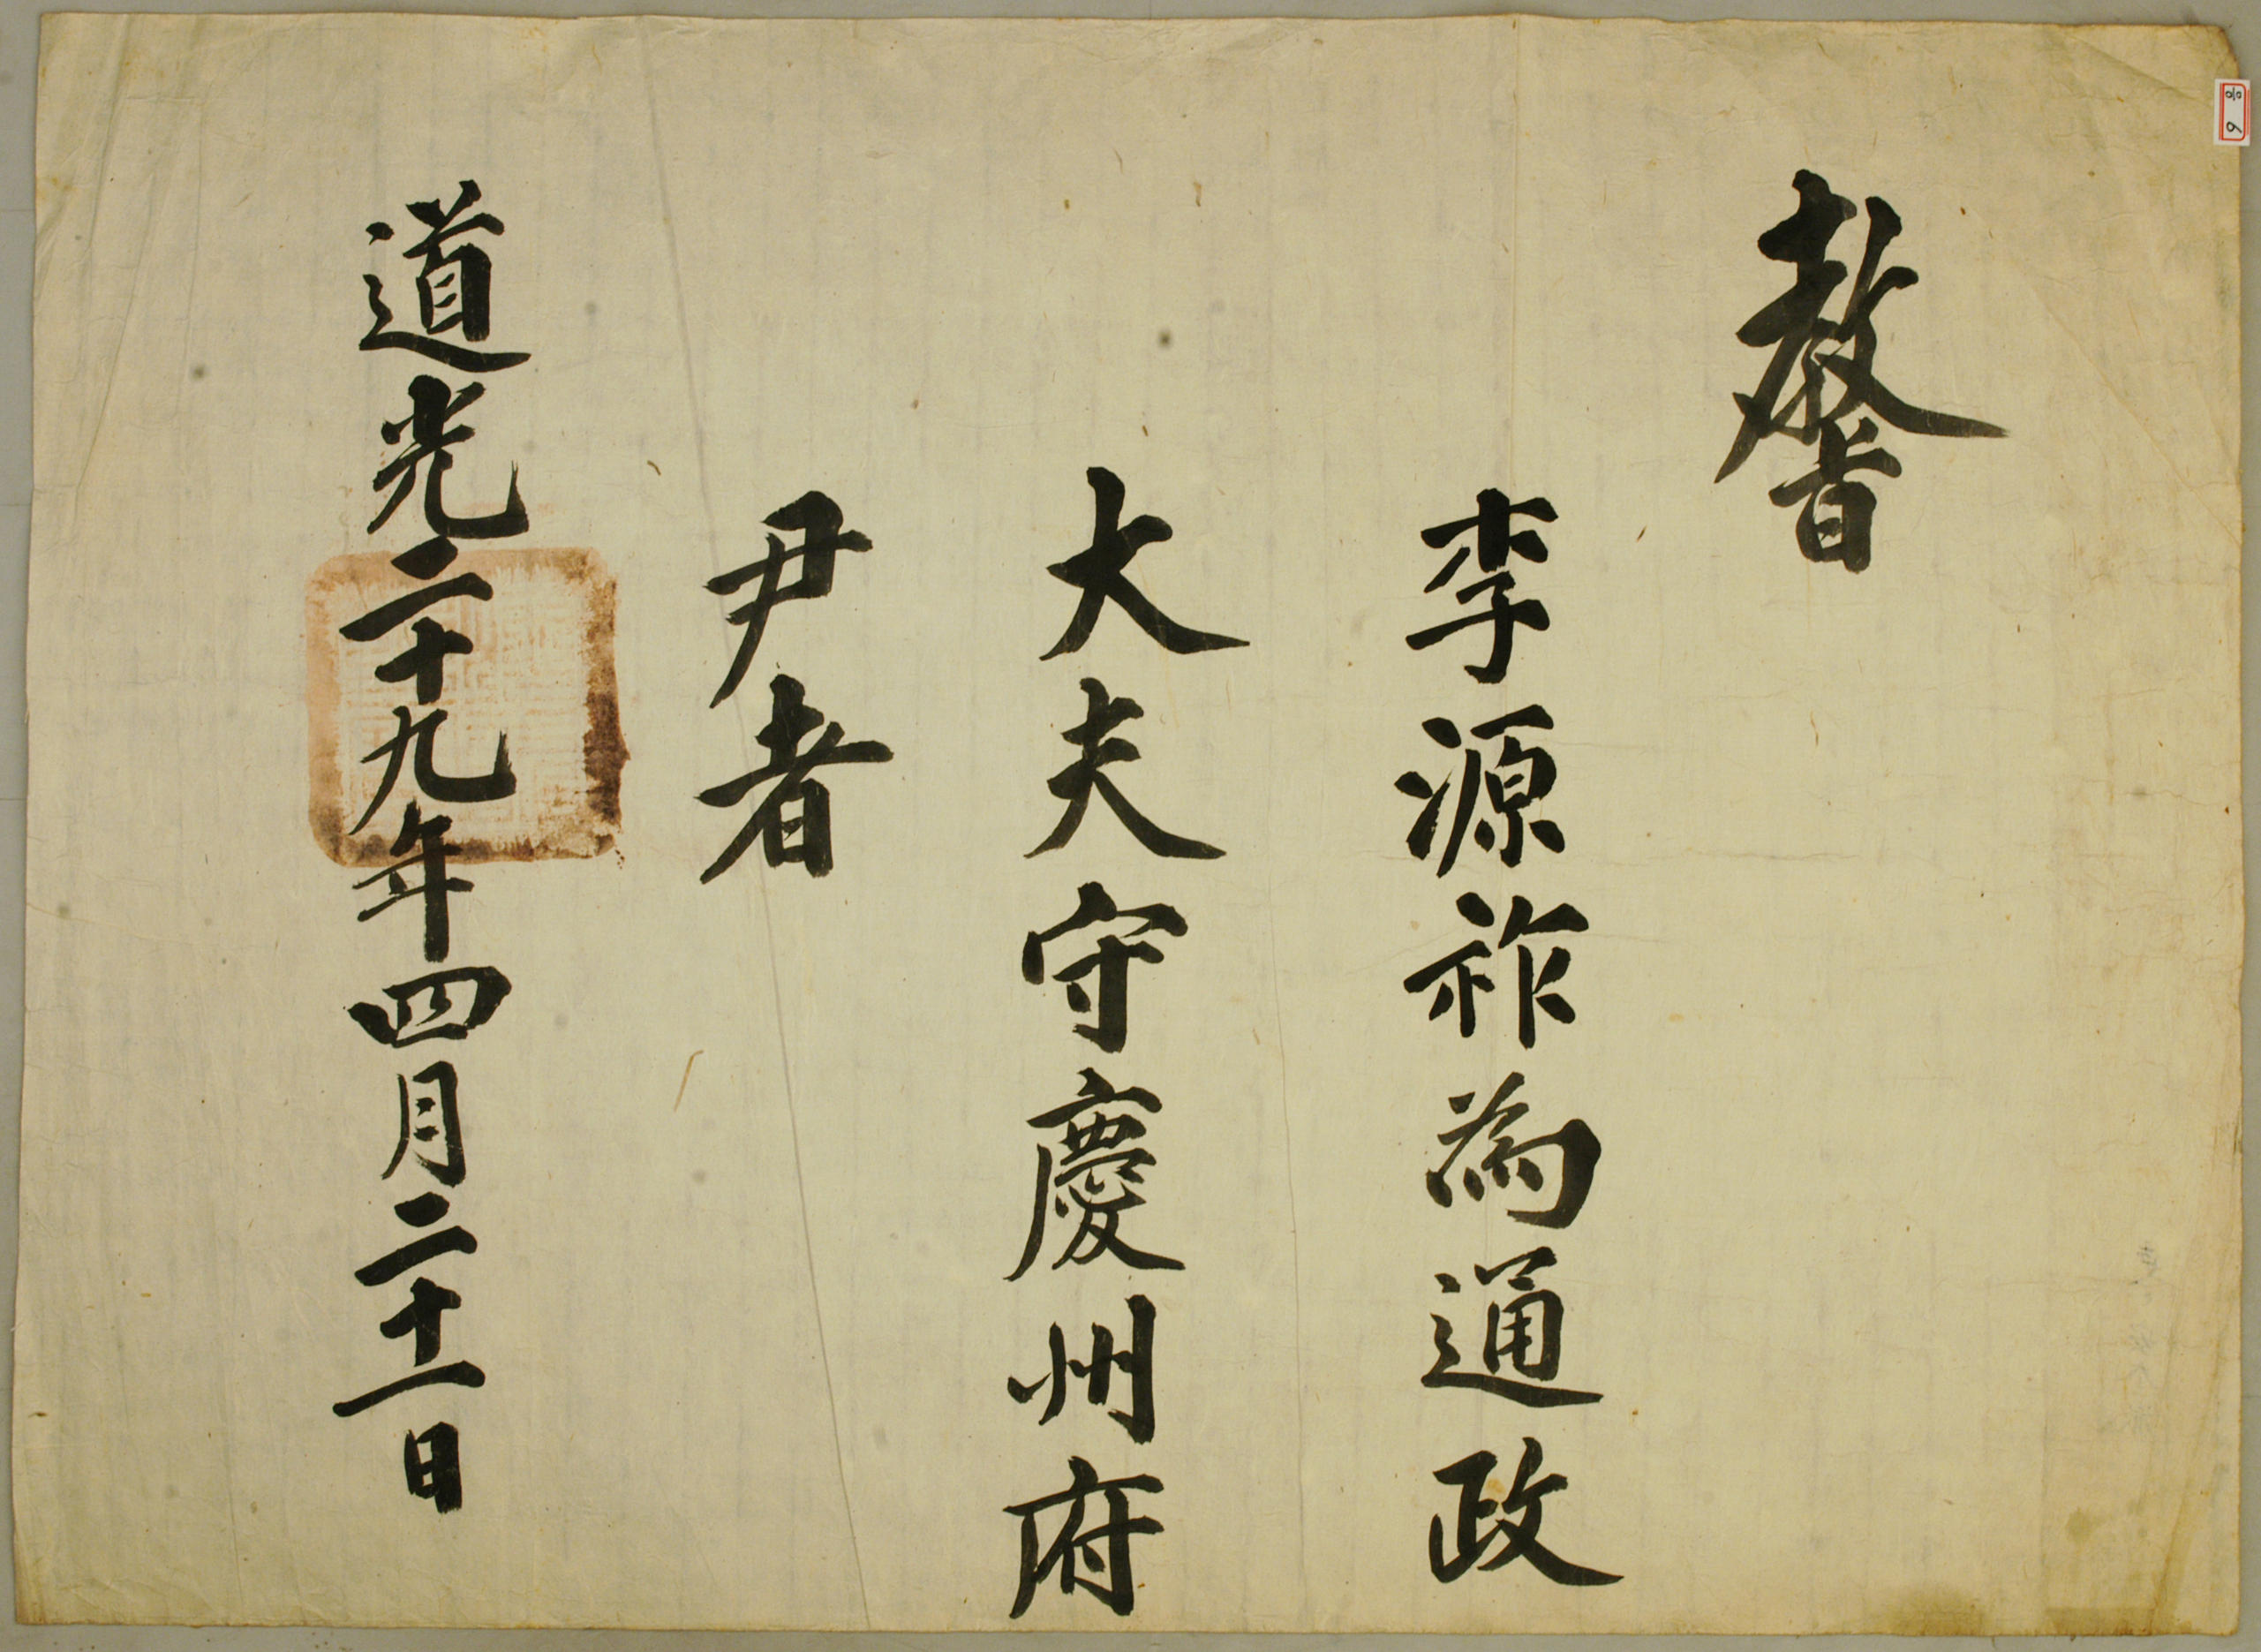 敎旨
李源祚為通政
大夫守慶州府
尹者
道光二十九年四月二十一日